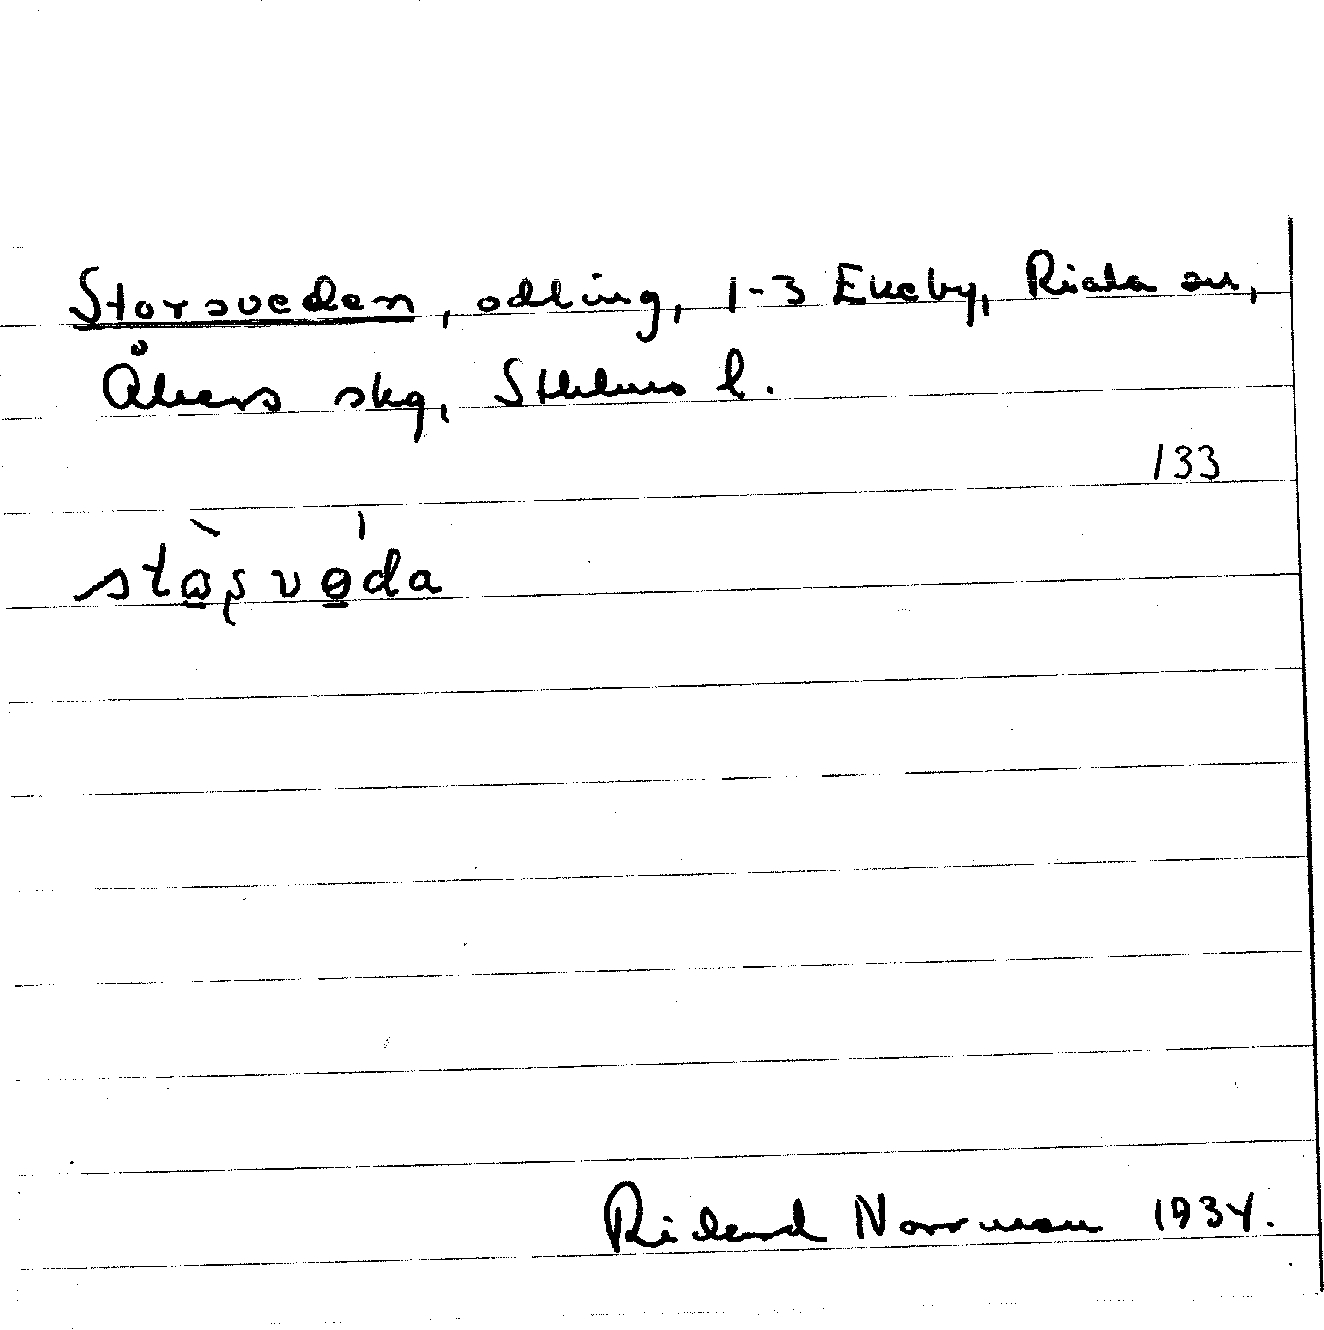 Storsveden, odling, 1-3 Ekeby, Riala sn,
Åkers skg, Sthlms l.
133
stò̲ʂvɵ̲́da
Rikard Norrman 1934.